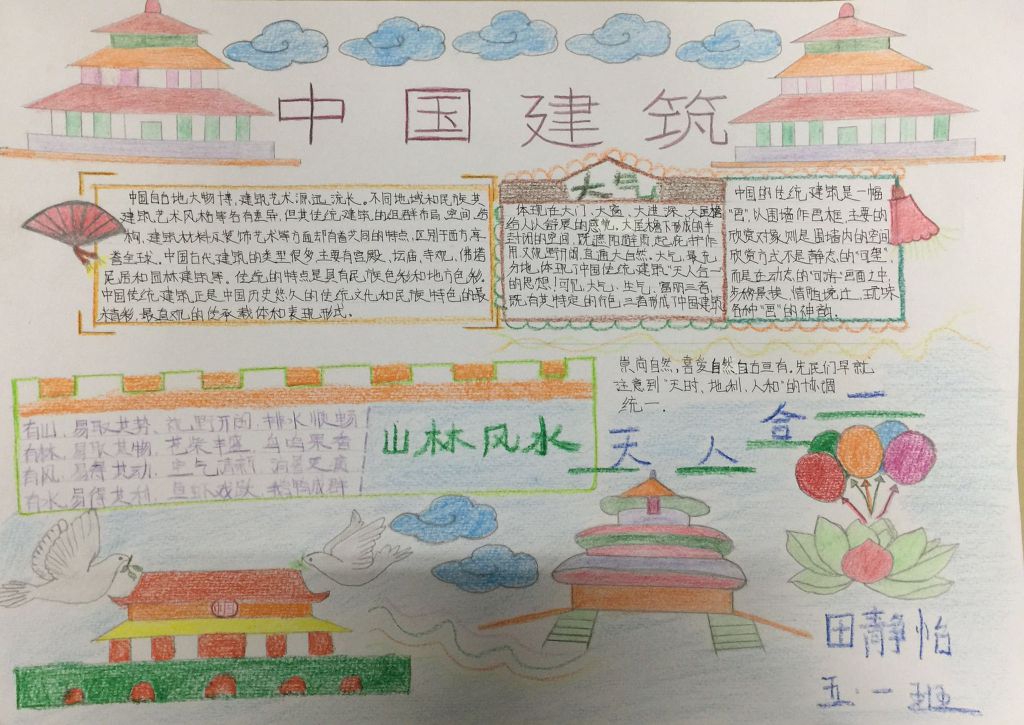 中国建筑
中国自古地大物博,建筑艺术源远流长。不同地域和民族其
建筑艺术风格等各有差异,但其传统建筑的组群布局、空间、结
构、建筑材料及装饰艺术等方面却有着共同的特点,区别于西方,享
誉全球。中国古代建筑的类型很多,主要有宫殿、坛庙、寺观、佛塔
民居和园林建筑等。传统的特点是具有民族色彩和地方色彩。
中国传统建筑正是中国历史悠久的传统文化和民族特色的最
精彩、最直观的传承载体和表现形式。
大气
体现在大门、大窗、大进深、大屋檐
给人以舒展的感觉。大屋檐下形成的半
封闭的空间,既遮阳避雨起庇护作
用又视野开阔,直通大自然。大气,最充
分地体现了中国传统建筑"天人合一"
的思想!可见,大气、生气、富丽三者,
既有其特定的作色,三者形成了中国建筑
中国的传统建筑是一幅
"画",以围墙作画框,主要的
欣赏对象则是围墙内的空间
欣赏方式不是静态的"可望",
而是在动态的"可游":画面之中,
步移景换,情随境迁,玩味
各种"画"的神韵。
崇尚自然,喜爱自然自古亘有。先民们早就
注意到"天时、地利、人和"的协调
统一.
天人合一
有山,易取其势,视野开阔,排水顺畅
有林,易取其物,花柴丰盛,鸟鸣果香
有风,易得其动,空气清新,消暑
有水,易得其利,鱼虾戏,鹅鸭成群
山林风水
中国
田静怡
五.一班